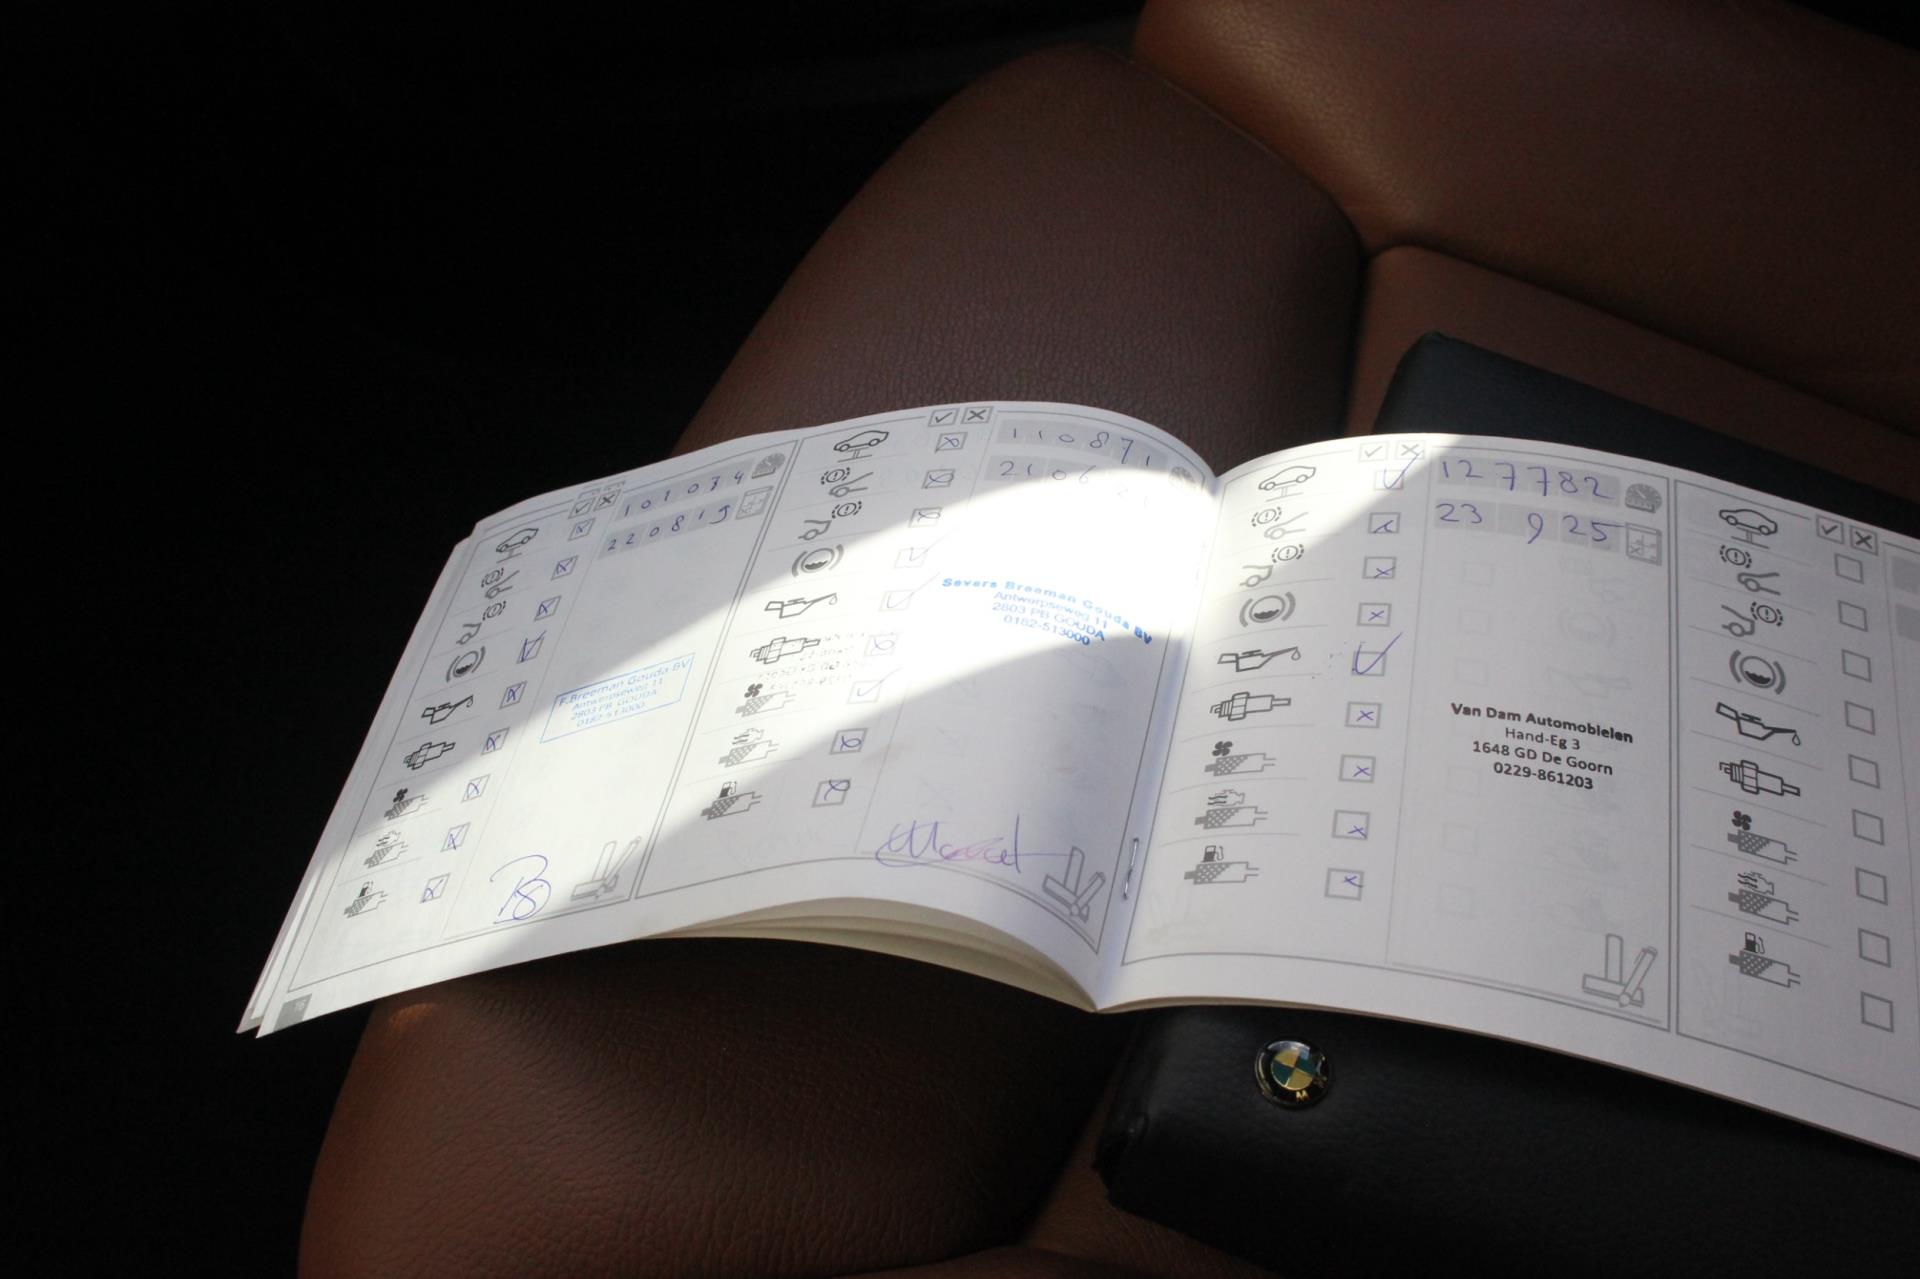 101034
220819
F.Breeman Gouda BV
Antwerpseweg 11
2803 PB GOUDA
0182-513000
16
110871
2106
Severs Breeman Gouda BV
Antwerpseweg 11
2803 PB GOUDA
0182-513000
127782
23 9 25
Van Dam Automobielen
Hand-Eg 3
1648 GD De Goorn
0229-861203